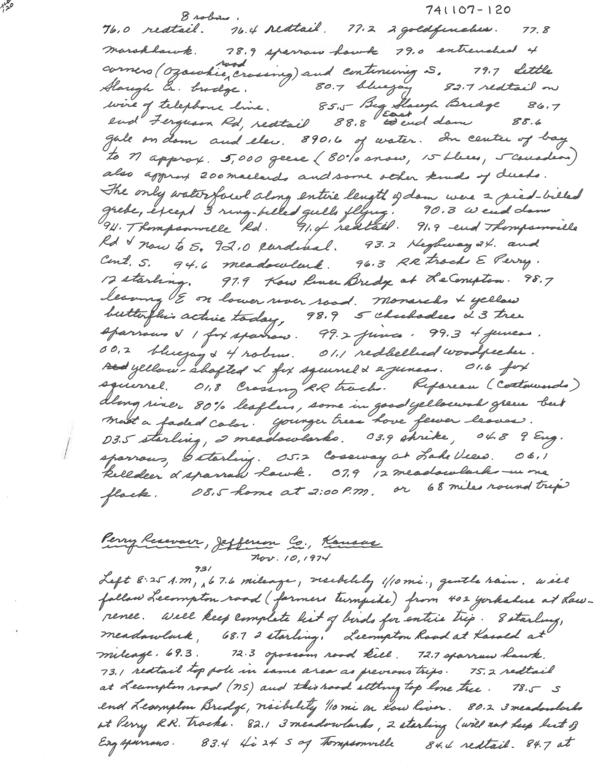 741107-120
8 robins.
76.0 redtail. 76.4 redtail. 77.2 2 goldfinches. 77.8
marsh hawk. 78.9 sparrow hawk 79.0 entrenched 4
corners (Ozawkie road crossing) and continuing S. 79.7 Little
Slough Cr. bridge. 80.7 bluejay 82.7 redtail on
wire of telephone line. 85.5 Big Slough Bridge 86.7
end Ferguson Rd, redtail 88.8 East end dam 88.6
gate on dam and elev. 890.6 of water. In center of bay
to N approx. 5,000 geese (80% snow, 15 blues, 5 Canadas)
also approx 200 mallards and some other kinds of ducks.
The only waterfowl along entire length of dam were 2 pied-billed
grebe, except 3 ring-billed gulls flying. 90.3 W end dam
91.1 Thompsonville Rd. 91.4 redtail. 91.9 end Thompsonville
Rd & now to S. 92.0 cardinal. 93.2 Highway 24. and
Cont. S. 94.6 meadowlark. 96.3 RR track E Perry.
12 starling. 97.9 Kaw River Bridge at LeCompton. 98.7
leaving E on lower river road. Monarchs & yellow
butterflies active today, 98.9 5 chickadees & 3 tree
sparrows & 1 fox sparrow. 99.2 junco. 99.3 4 juncos.
00.2 bluejay & 4 robins. 01.1 redbellied woodpecker.
yellow-shafted & fox squirrel & 2 juncos. 01.6 fox
squirrel. 01.8 Crossing RR track. Riparean (Cottonwoods)
along river 80% leafless, some in good yellowish green but
most a faded color. younger trees have fewer leaves.
03.5 starling, 2 meadowlarks. 03.9 shrike, 04.8 9 Eng.
sparrows, starling. 05.2 Coseway at Lake View. 06.1
killdeer & sparrow hawk. 07.9 12 meadowlarks in one
flock. 08.5 home at 2:00 P.M. or 68 miles round trip

Perry Resevoir, Jefferson Co., Kansas
Nov. 10, 1974
Left 8:25 A.M, 931 67.6 mileage, visibility 1/10 mi., gentle rain. will
follow Lecompton road (farmers turnpike) from 402 Yorkshire at Law-
rence. Will keep complete list of birds for entire trip. 8 starling,
meadowlark, 68.7 2 starling. Lecompton Road at Kasold at
mileage. 69.3. 72.3 opossom road kill. 72.7 sparrow hawk.
73.1 redtail top pole in same area as previous trips. 75.2 redtail
at Lecompton road (NS) and this road sitting top lone tree. 78.5 S
end Lecompton Bridge, visibility 1/10 mi on Kaw River. 80.2 3 meadowlarks
at Perry R.R. tracks. 82.1 3 meadowlarks, 2 starling (will not keep list of
Eng sparrows. 83.4 Hi 24 S of Thompsonville 84.4 redtail. 84.7 at